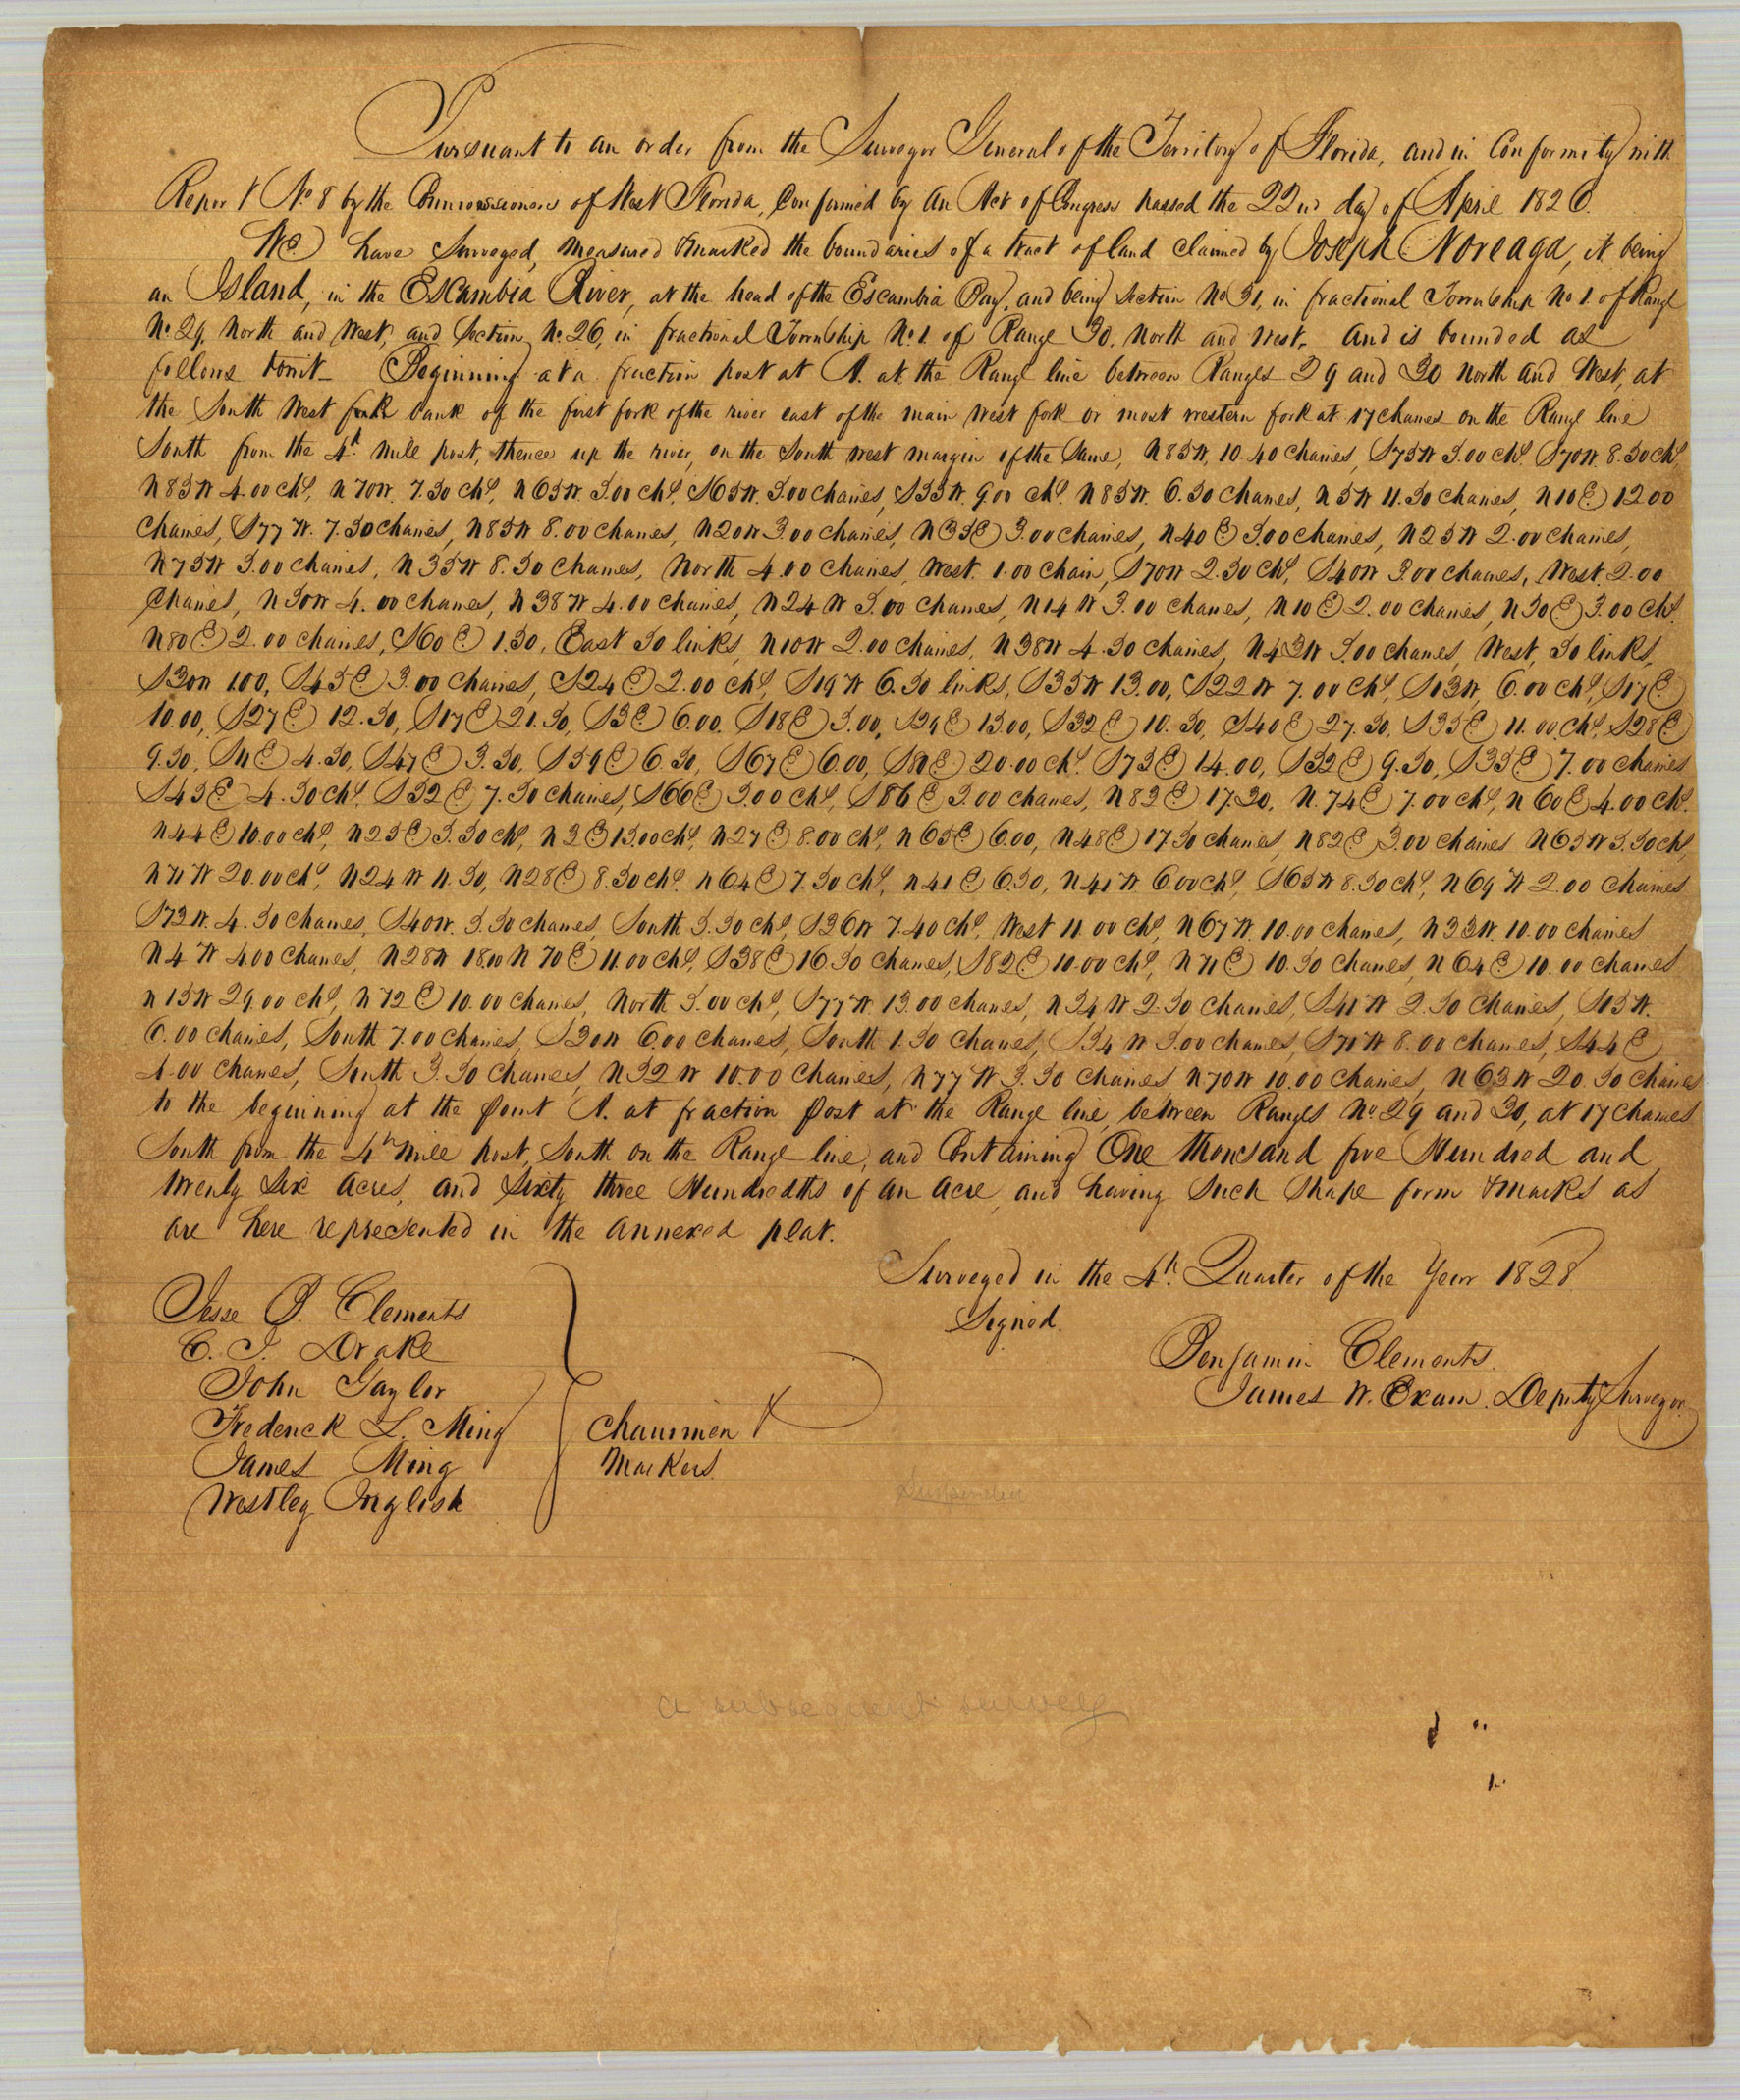 Pursuant to an order from the Surveyor General of the Territory of Florida, and in Conformity with
Report No. 8 by the Commissioners of West Florida, Confirmed by An Act of Congress passed the 22nd day of April 1826.
We have Surveyed, measured & marked the boundaries of a tract of land claimed by Joseph Noreaga, it being
an Island, in the Escambia River, at the head of the Escambia Bay, and being Section No 31, in fractional Township No 1. of Range
No. 29, North and West, and Section No. 26, in fractional Township No 1. of Range 30. North and West, and is bounded as
follows towit - Beginning at a fraction post at A. at the Range line between Ranges 29 and 30 North and West, at
the South West bank of the first fork of the river east of the main west fork or most western fork at 17 chaines on the Range line
South from the 4th mile post, thence up the river, on the South west margin of the Same, N85W, 10.40 Chaines, S75W 5.00 chs. S70W. 8.50 chs.
N85W 4.00 chs, N70W. 7.50 chs, N65W. 5.00 chs, S65W. 5.00 chaines, S55W. 9.00 chs. N85W. 6.50 chaines, N5W 11.50 chaines, N10E 12.00
Chaines, S77W. 7.50 chaines, N85W 8.00 chaines, N20W 3.00 chaines, N35E 3.00 chaines, N40E 5.00 chaines, N25W 2.00 chaines,
N75W 5.00 chaines, N35W 8.50 Chaines, North 4.00 Chaines, West. 1.00 Chain, S70W 2.50 chs, S40W 3.00 chaines, West 2.00
Chaines, N50W 4.00 chaines, N38W 4.00 chaines, N24W 5.00 chaines, N14W 3.00 chaines, N10E 2.00 chaines, N50E 3.00 chs.
N80E 2.00 chaines, S60E 1.50, East 50 links, N10W 2.00 chaines, N38W 4.50 chaines, N43W 5.00 chaines, West, 50 links,
S30W 1.00, S45E 3.00 chaines, S24E 2.00 chs, S19W 6.50 links, S35W 13.00, S22W 7.00 chs, S13W, 6.00 chs, S17E
10.00, S27E 12.50, S17E 21.50, S3E 6.00. S18E 5.00, S29E 15.00, S32E 10.50, S40E 27.50, S35E 11.00 chs, S28E
9.50, S11E 4.50, S47E 3.50, S59E 6.50, S67E 6.00, S80E 20.00 chs. S73E 14.00, S52E 9.50, S35E 7.00 chaines
S45E 4.50 chs. S32E 7.50 chaines, S66E 5.00 chs, S86E 5.00 chaines, N83E 17.50, N.74E 7.00 chs, N60E 4.00 chs.
N44E 10.00 chs, N25E 5.50 chs, N3E 15.00 chs, N27E 8.00 chs, N65E 6.00, N48E 17.50 chaines, N82E 5.00 chaines N65W 5.50 chs,
N71W 20.00 chs, N24W 11.50, N28E 8.50 chs. N64E 7.50 chs, N41E 6.50, N41W 6.00 chs, S65W 8.50 chs, N69W 2.00 chaines
S73W. 4.50 chaines, S40W. 5.50 chaines, South 5.50 chs, S36W 7.40 chs. West 11.00 chs, N67W. 10.00 chaines, N33W. 10.00 chaines
N4W 4.00 chaines, N28W 18.00 N70E 11.00 chs, S38E 16.50 chaines, S82E 10.00 chs, N71E 10.50 chaines, N64E 10.00 chaines
N15W 29.00 chs, N72E 10.00 chaines, North 5.00 chs, S77W. 13.00 chaines, N34W 2.50 chaines, S41W 2.50 chaines, S15W.
6.00 chaines, South 7.00 chaines, S30W 6.00 chaines, South 1.50 chaines, S34W 5.00 chaines, S71W 8.00 chaines, S44E
4.00 chaines, South 3.50 chaines, N52W 10.00 chaines, N77W 3.50 chaines N70W 10.00 chaines, N63W 20.50 chaines
to the beginning at the point A. at fraction post at the Range line, between Ranges No 29 and 30, at 17 chaines
South from the 4th mile post, South on the Range line, and Containing One thousand five Hundred and
twenty Six acres, and Sixty three Hundredths of an acre, and having Such Shape form & marks as
are here represented in the annexed plat.
Surveyed in the 4th. Quarter of the Year 1828
Signed.
Benjamin Clements.
James W. Exum. Deputy Surveyor.
Jesse B. Clements
C. I. Drake
John Taylor
Frederick L. Ming
James Ming
Westley Inglish
Chainmen &
Markers.
a subsequent survey